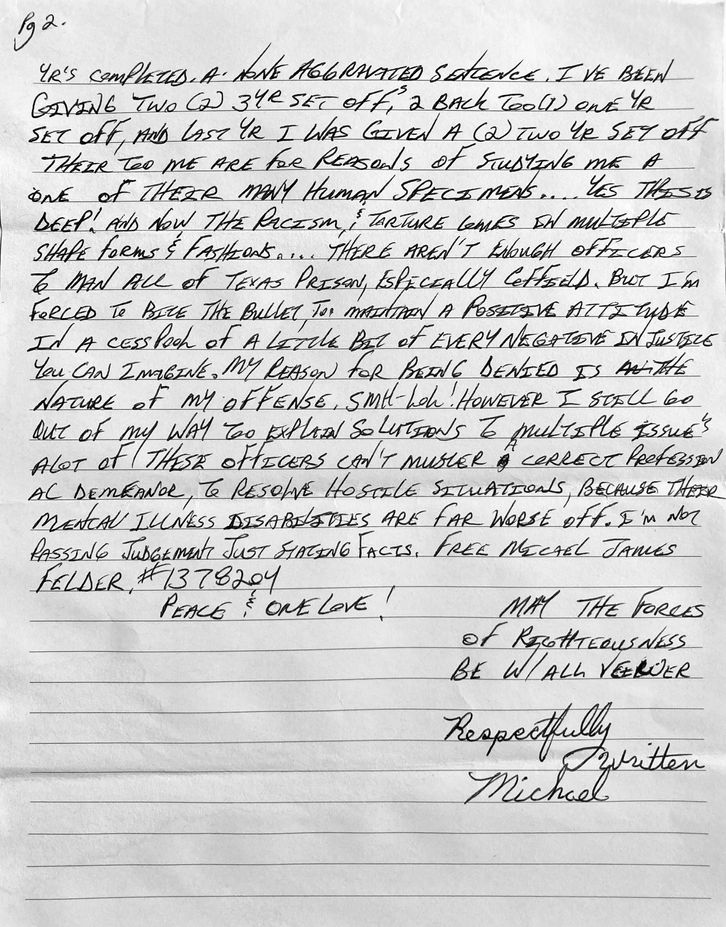 Pg 2.
YR'S COMPLETED. A. NONE AGGRAVATED SENTENCE. I'VE BEEN
GIVING TWO (2) 3YR SET OFF'S, 2 BACK TOO (1) ONE YR
SET OFF, AND LAST YR I WAS GIVEN A (2) TWO YR SET OFF
THEIR TOO ME ARE FOR REASONS OF STUDYING ME A
ONE OF THEIR MANY HUMAN SPECIMENS.... YES THIS IS
DEEP! AND NOW THE RACISM, & TORTURE COMES IN MULTIPLE
SHAPE FORMS & FASHIONS.... THERE AREN'T ENOUGH OFFICERS
TO MAN ALL OF TEXAS PRISON, ESPECIALLY COFFIELD. BUT I'M
FORCED TO BITE THE BULLET, TO MAINTAIN A POSITIVE ATTITUDE
IN A CESSPOOL OF A LITTLE BIT OF EVERY NEGATIVE INJUSTICE
YOU CAN IMAGINE. MY REASON FOR BEING DENIED IS THE
NATURE OF MY OFFENSE. SMH-LOL! HOWEVER I STILL GO
OUT OF MY WAY TOO EXPLAIN SOLUTIONS TO MULTIPLE ISSUE'S
ALOT OF THESE OFFICERS CAN'T MUSTER A CORRECT PROFESSION
AL DEMEANOR, TO RESOLVE HOSTILE SITUATIONS, BECAUSE THEIR
MENTAL ILLNESS DISABILITIES ARE FAR WORSE OFF. I'M NOT
PASSING JUDGEMENT JUST STATING FACTS. FREE MICAEL JAMES
FELDER. #1378204
PEACE & ONE LOVE!
MAY THE FORCES
OF RIGHTEOUSNESS
BE W/ ALL
Respectfully
Written
Michael